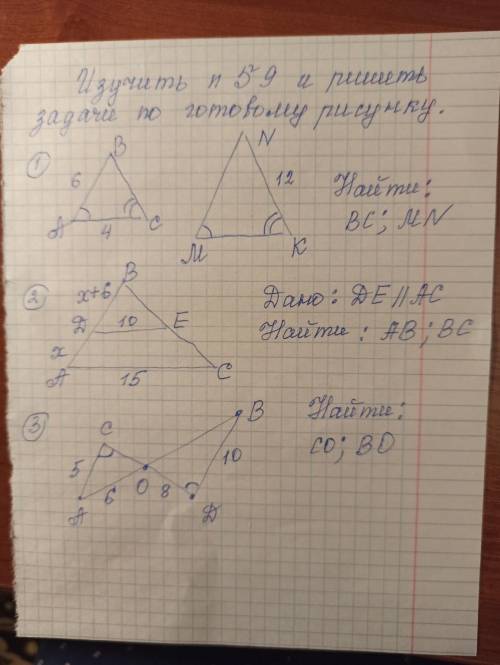 Изучить п 59 и решить
задачи по готовому рисунку.
1
B
6
A
4
C
N
12
M
K
Найти:
BC; MN
2
B
x+6
D
10
E
x
A
15
C
Дано: DE || AC
Найти: AB; BC
3
C
5
A
6
O
8
D
10
B
Найти:
CO; BO